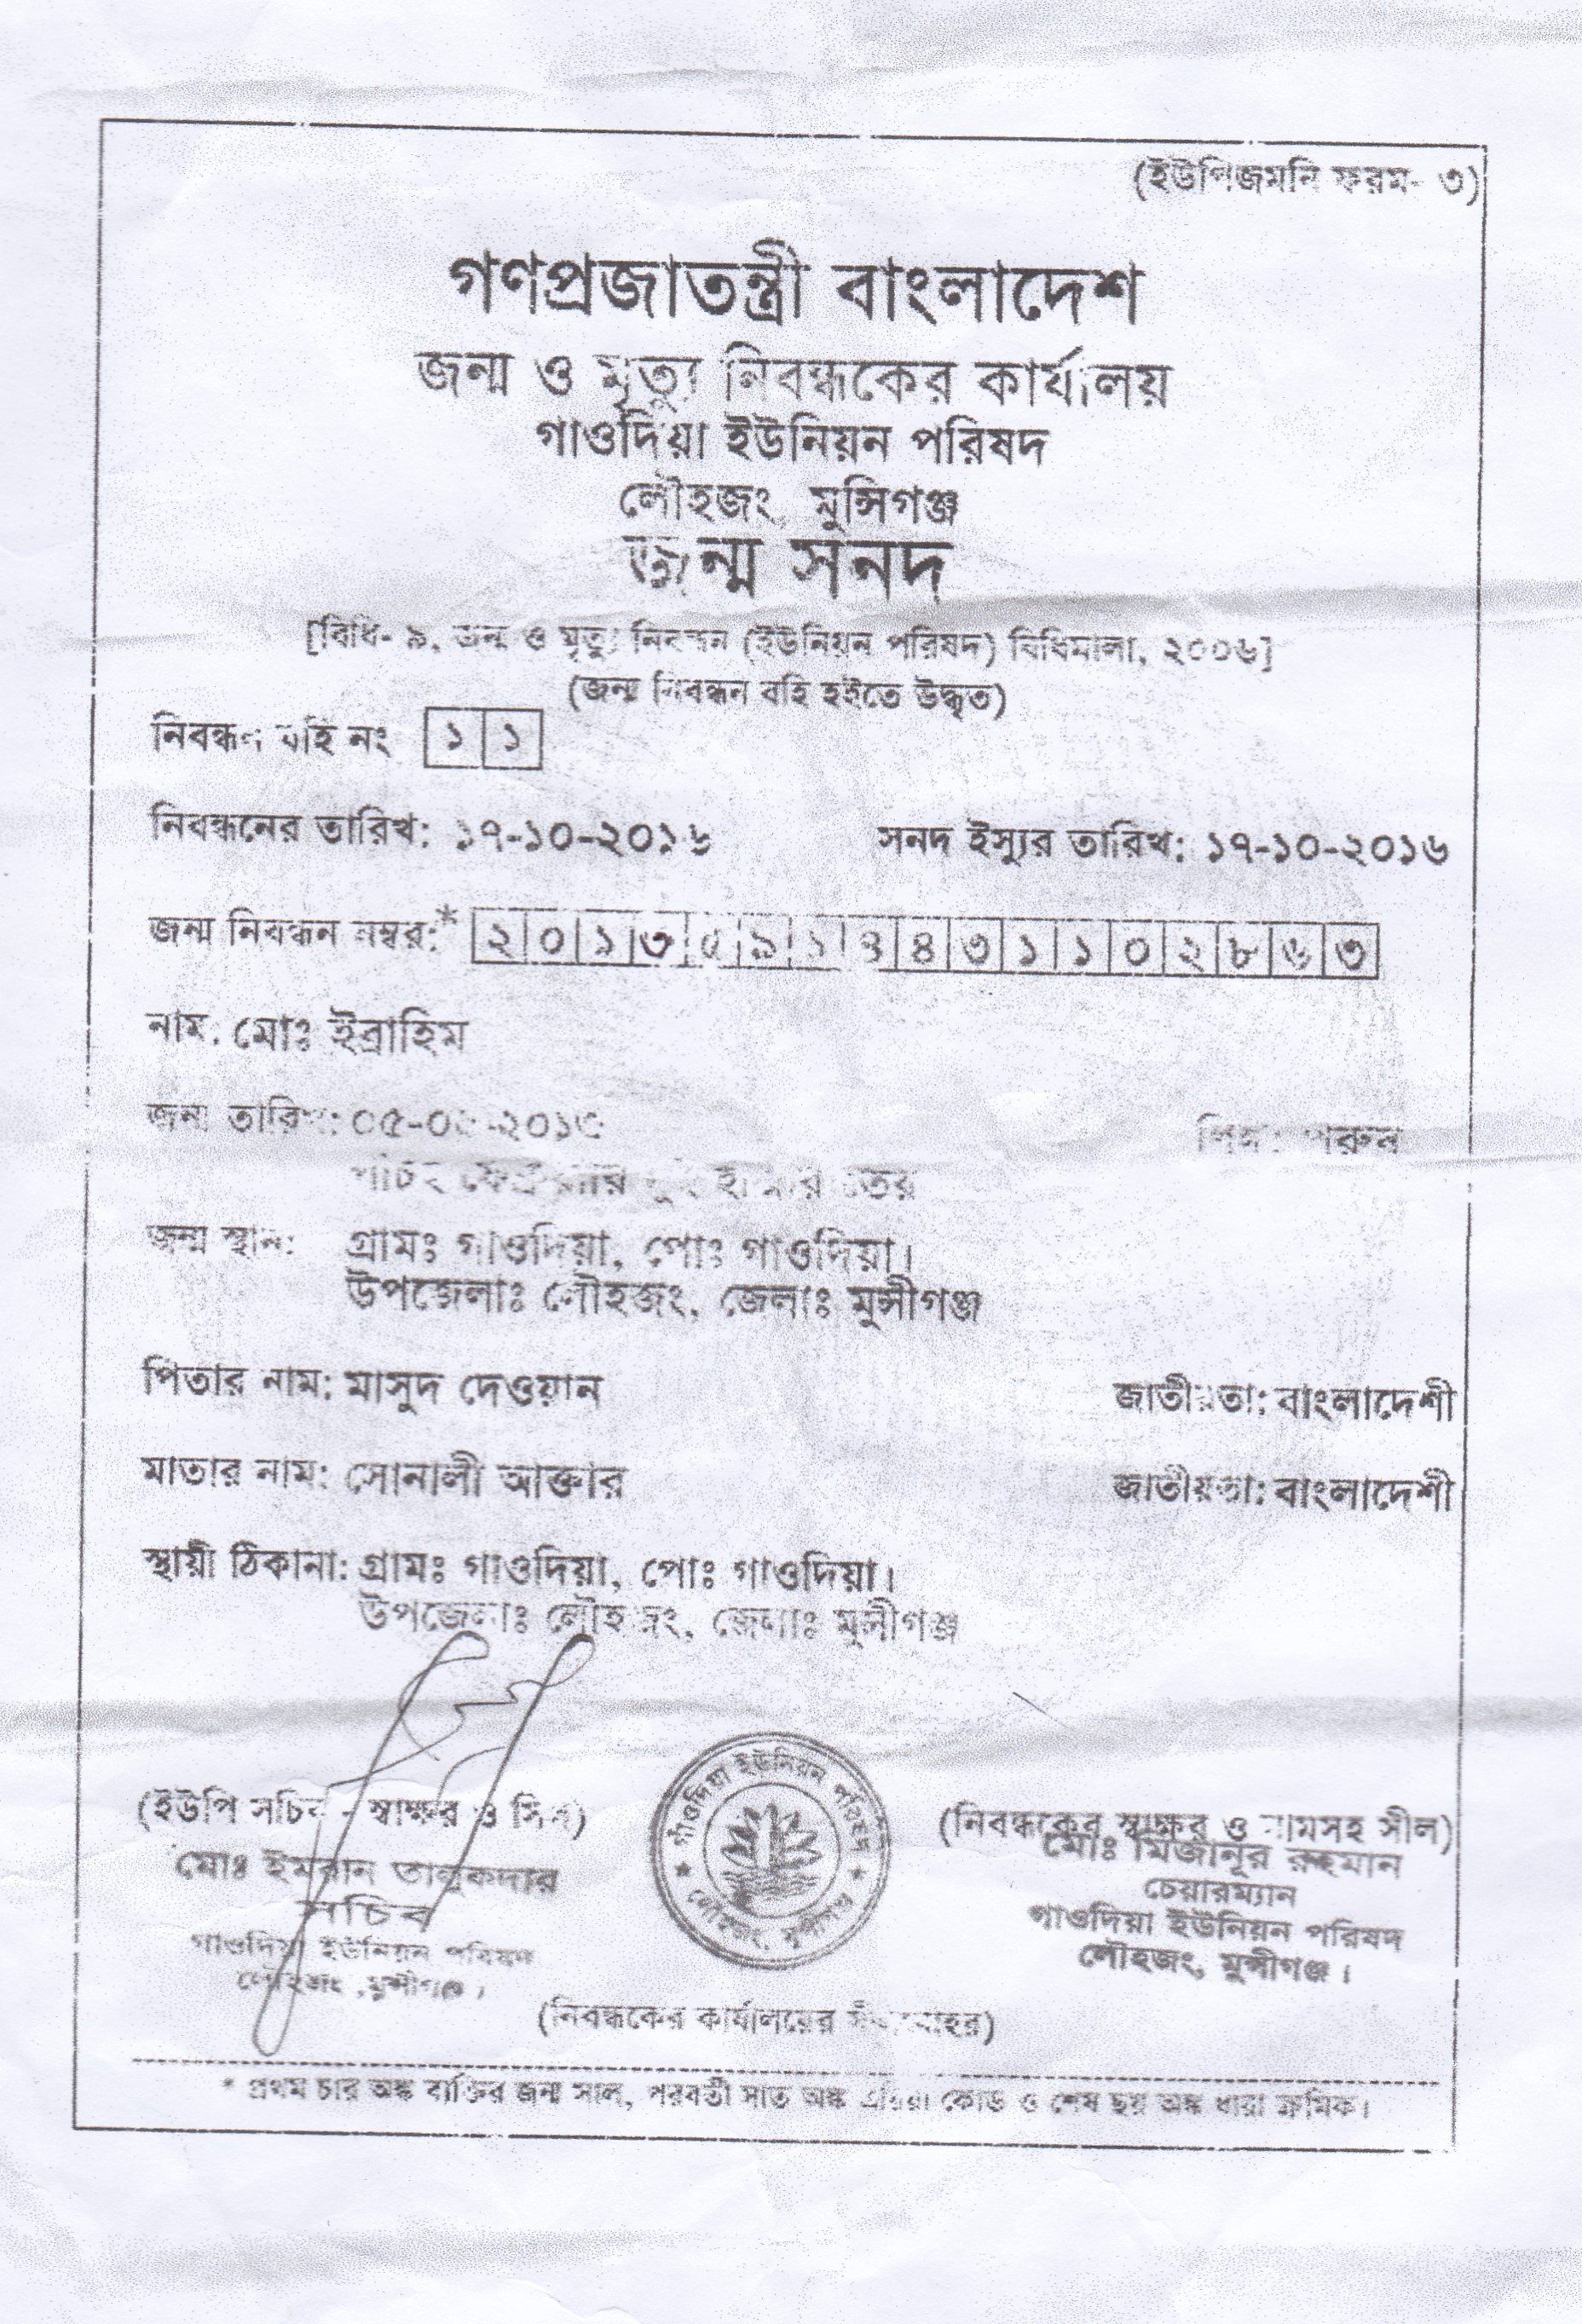 (ইউপিজমনি ফরম- ৩)
গণপ্রজাতন্ত্রী বাংলাদেশ
জন্ম ও মৃত্যু নিবন্ধকের কার্যালয়
গাওদিয়া ইউনিয়ন পরিষদ
লৌহজং, মুন্সিগঞ্জ
জন্ম সনদ
[বিধি- ৯, জন্ম ও মৃত্যু নিবন্ধন (ইউনিয়ন পরিষদ) বিধিমালা, ২০০৬]
(জন্ম নিবন্ধন বহি হইতে উদ্ধৃত)
নিবন্ধন বহি নং ১ ১
নিবন্ধনের তারিখ: ১৭-১০-২০১৬ সনদ ইস্যুর তারিখ: ১৭-১০-২০১৬
জন্ম নিবন্ধন নম্বর:* ২ ০ ১ ৩ ৫ ৯ ১ ৪ ৪ ৩ ১ ১ ০ ২ ৮ ৬ ৩
নাম: মোঃ ইব্রাহিম
জন্ম তারিখ: লিঙ্গ: পুরুষ
হাজার তের
জন্ম স্থান: গ্রামঃ গাওদিয়া, পোঃ গাওদিয়া।
উপজেলাঃ লৌহজং, জেলাঃ মুন্সীগঞ্জ
পিতার নাম: মাসুদ দেওয়ান জাতীয়তা: বাংলাদেশী
মাতার নাম: সোনালী আক্তার জাতীয়তা: বাংলাদেশী
স্থায়ী ঠিকানা: গ্রামঃ গাওদিয়া, পোঃ গাওদিয়া।
উপজেলাঃ লৌহজং, জেলাঃ মুন্সীগঞ্জ
(ইউপি সচিব - স্বাক্ষর ও সিল)
মোঃ ইমরান তালুকদার
সচিব
গাওদিয়া ইউনিয়ন পরিষদ
লৌহজং ,মুন্সীগঞ্জ ।
গাঁওদিয়া ইউনিয়ন পরিষদ
লৌহজং, মুন্সীগঞ্জ
(নিবন্ধকের স্বাক্ষর ও নামসহ সীল)
মোঃ মিজানূর রহমান
চেয়ারম্যান
গাওদিয়া ইউনিয়ন পরিষদ
লৌহজং, মুন্সীগঞ্জ ।
(নিবন্ধকের কার্যালয়ের সীলমোহর)
* প্রথম চার অঙ্ক ব্যক্তির জন্ম সাল, পরবর্তী সাত অঙ্ক এরিয়া কোড ও শেষ ছয় অঙ্ক ধারা ক্রমিক।